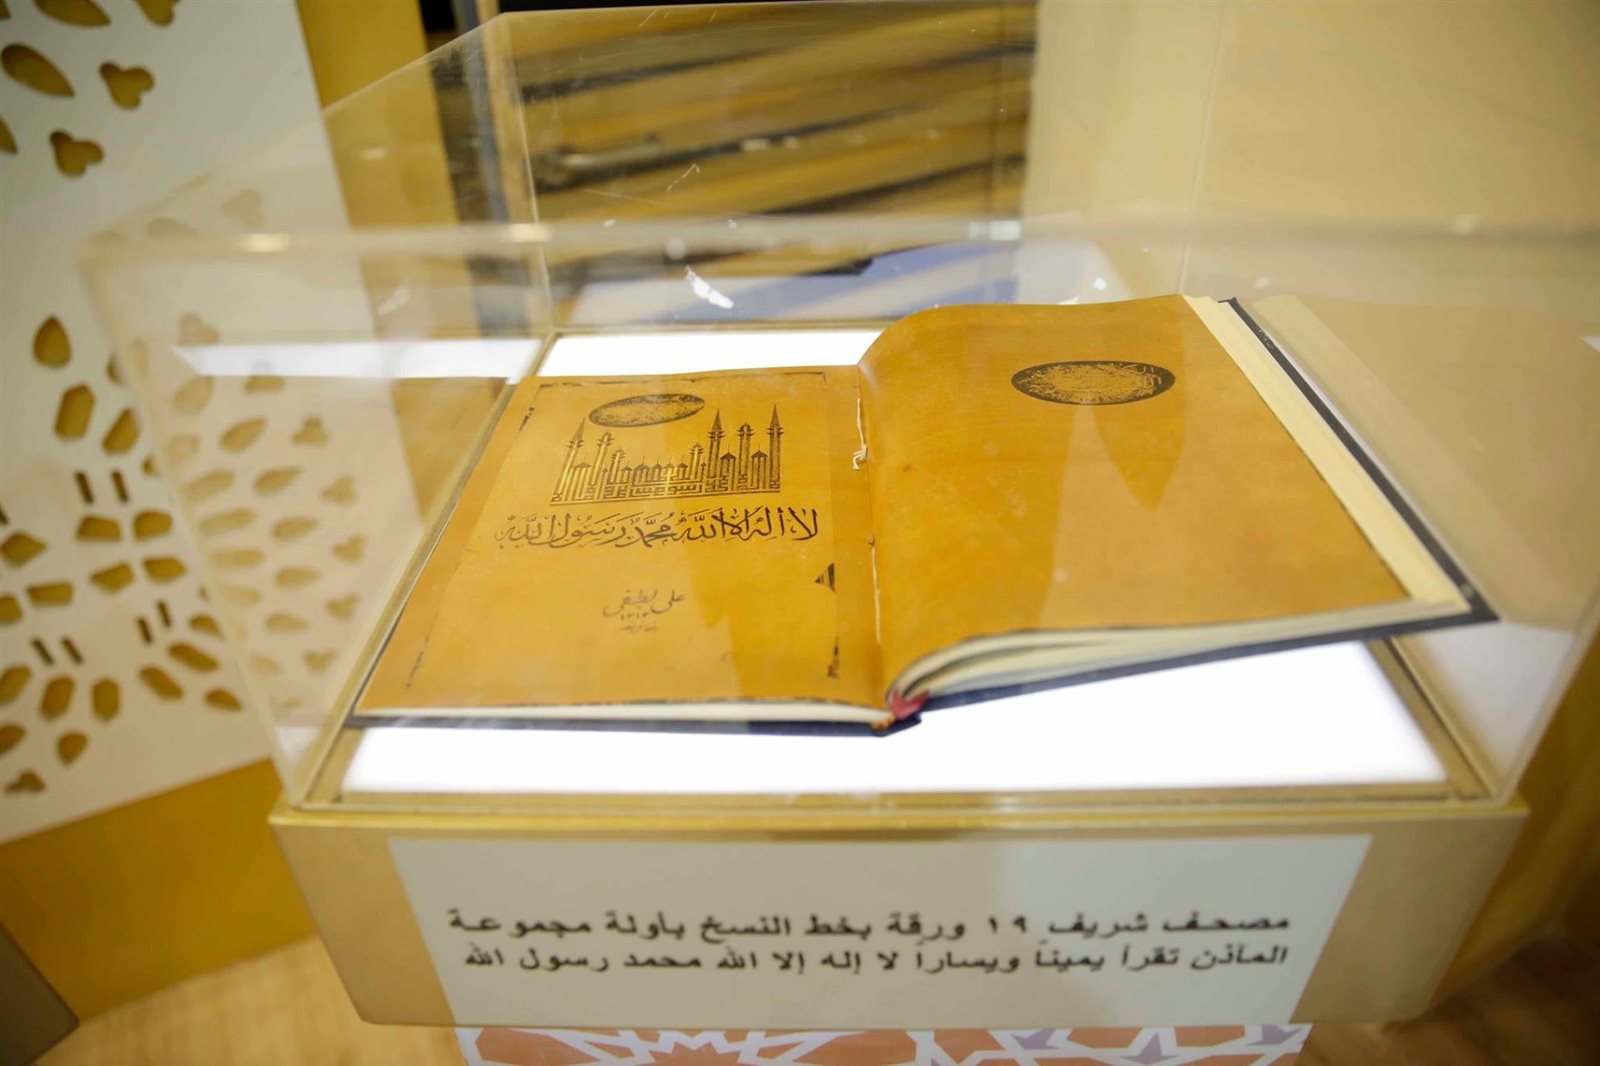 لا إله إلا الله محمد رسول الله
علي لطفي
١٣١٣
مصحف شريف ١٩ ورقة بخط النسخ بأولة مجموعة
المأذن تقرأ يميناً ويساراً لا إله إلا الله محمد رسول الله